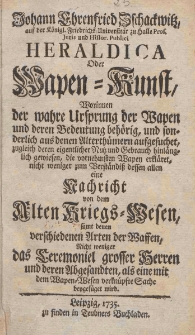 Johann Ehrenfried Zschackwitz,
aus der Königl. Friedrichs-Universität zu Halle Prof.
Juris und Histor. Publici
HERALDICA
Oder
Wapen-Kunst,
Worinnen
der wahre Ursprung der Wapen
und deren Bedeutung behörig, und son-
derlich aus denen Alterthümern aufgesuchet,
zugleich deren eigentlicher Nutz und Gebrauch hinläng-
lich gewiesen, die vornehmsten Wapen erkläret,
nicht weniger zum Verständniß dessen allen
eine
Nachricht
von dem
Alten Kriegs-Wesen,
samt denen
verschiedenen Arten der Waffen,
nicht weniger
das Ceremoniel grosser Herren
und deren Abgesandten, als eine mit
dem Wapen-Wesen verknüpfte Sache
beygefüget wird.
Leipzig, 1735.
zu finden in Teubners Buchladen.